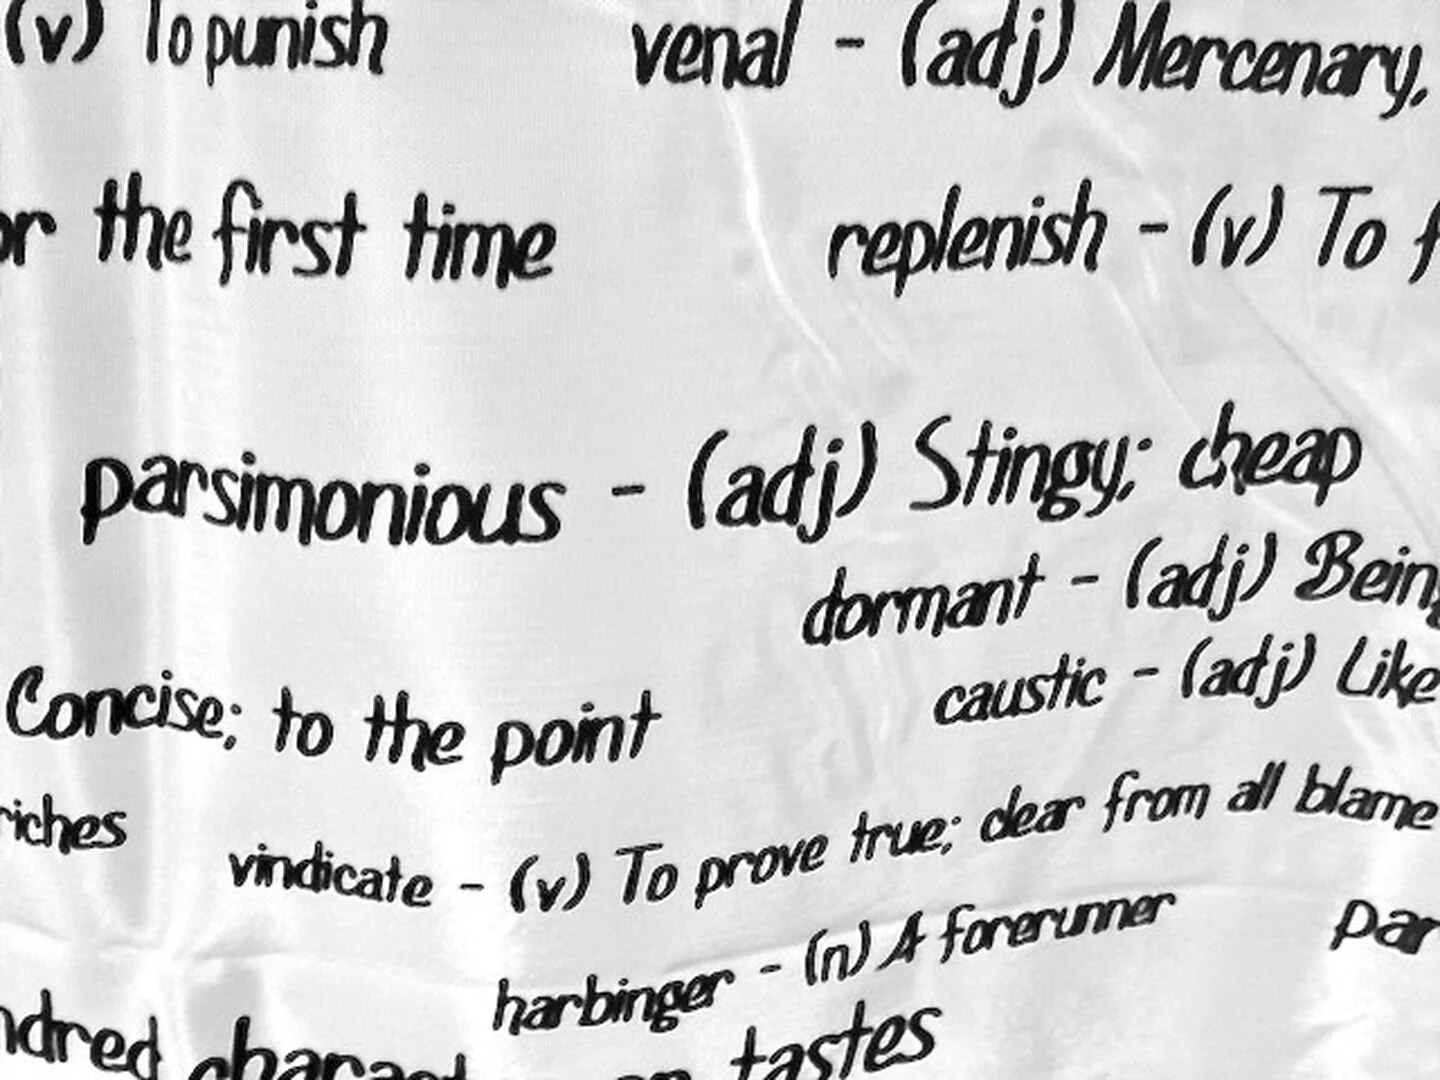 (v) To punish
venal - (adj) Mercenary,
or the first time
replenish - (v) To f
parsimonious - (adj) Stingy; cheap
dormant - (adj) Being
caustic - (adj) Like
Concise; to the point
riches
vindicate - (v) To prove true; clear from all blame
harbinger - (n) A forerunner
par
ndred charact
or tastes